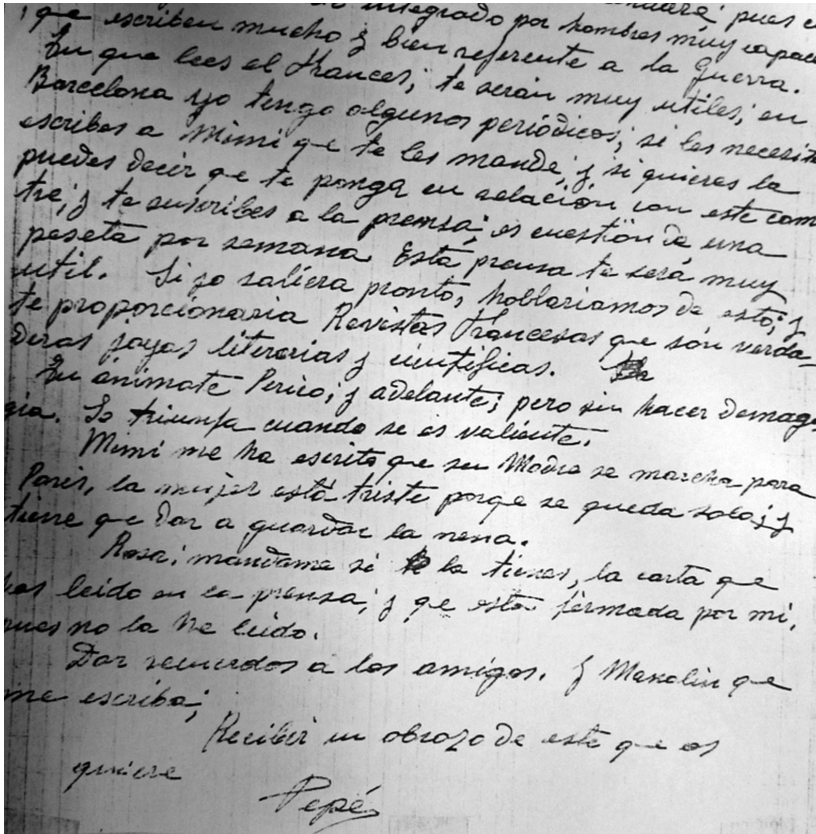 integrado por hombres muy capace
, que escriben mucho y bien referente a la guerra.
Tu que lees el frances; te serán muy utiles; en
Barcelona yo tengo algunos periódicos; si les necesita
escribes a Mimi que te les mande; y si quieres la
puedes decir que te ponga en relación con este com
tre; y te suscribes a la prensa; es cuestión de una
peseta por semana. Esta prensa te será muy
util. Si yo saliera pronto, hablariamos de esto; y
te proporcionaria Revistas francesas que són verda-
deras joyas literarias y cientificas.
Tu ánimate Perico, y adelante; pero sin hacer demago
gia. Se triunfa cuando se es valiente.
Mimi me ha escrito que su Madre se marcha para
Paris, la mujer está triste porqe se queda sola; y
tiene que dar a guardar la nena.
Rosa; mandame si la tienes, la carta que
has leido en la prensa; y que está firmada por mi,
pues no la he leido.
Dar recuerdos a los amigos. y Manolin que
me escriba;
Recibir un abrazo de este que os
quiere
Pepé